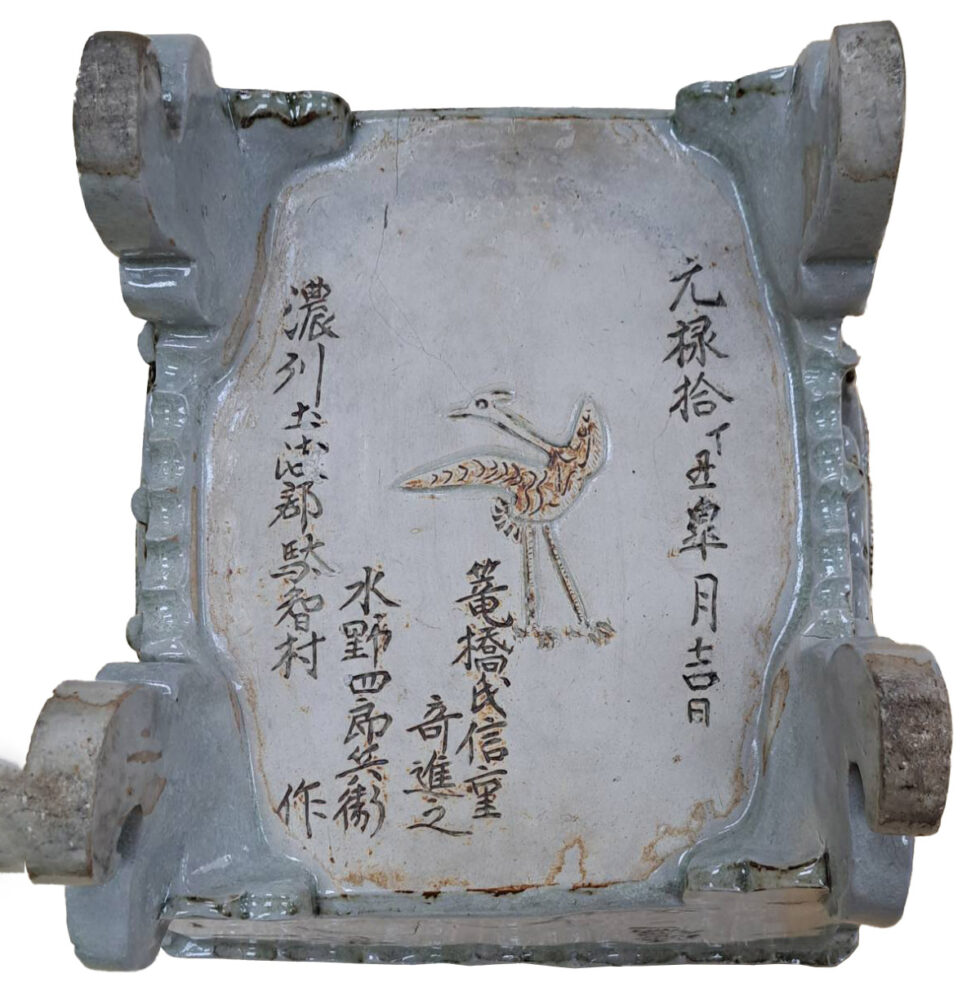 元禄拾丁丑皐月吉日
篭橋氏信重
奇進之
水野四郎兵衛
濃州土岐郡駄智村
作